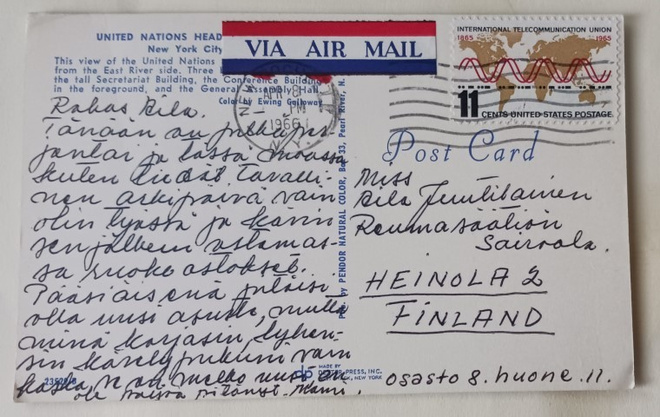 UNITED NATIONS HEAD
New York City
This view of the United Nations
from the East River side. Three
the tall Secretariat Building, the Conference Building
in the foreground, and the General Assembly Hall.
Color by Ewing Galloway
VIA AIR MAIL
NEW YORK
APR 8
PM
1966
N.Y.
INTERNATIONAL TELECOMMUNICATION UNION
1865 1965
11 CENTS UNITED STATES POSTAGE
Rakas Eila.
Tänään on pitkäper
jantai ja tässä maassa
kuten tiedät tavalli-
nen arkipäivä vain
olin työssä ja kävin
sen jälkeen ostamas-
sa ruoka ostokset.
Pääsiäisenä pitäisi
olla uusi asusta, mutta
minä korjasin lyhen-
sin kävelypukuni vain
ole
Pub. by PENDOR NATURAL COLOR, Box 33, Pearl River, N.
MADE BY
PRESS, INC.
NEW YORK
Post Card
Miss
Eila Juutilainen
Reumasäätiön
Sairaala.
HEINOLA 2
FINLAND
osasto 8. huone 11.